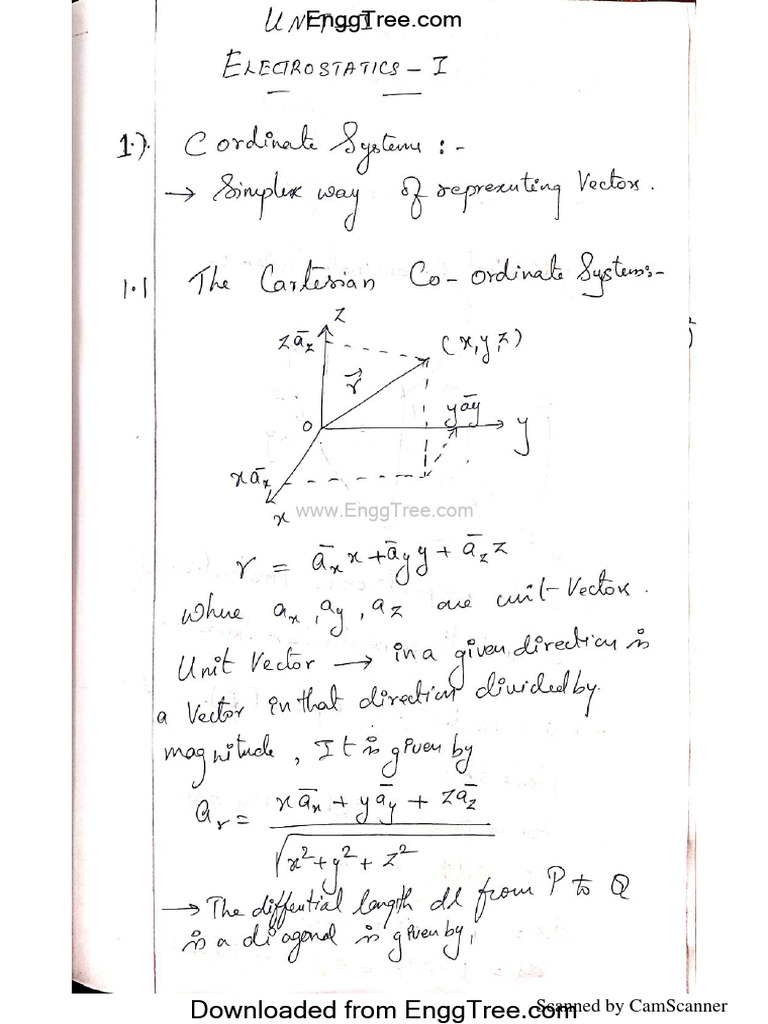 UNIT-I
EnggTree.com
ELECTROSTATICS - I
1.). Cordinate Systems :-
→ Simplex way of representing Vectors.
1.1 The Cartesian Co-ordinate System:-
z
zāz
(x,y,z)
r⃗
yāy
o
y
xāx
x
www.EnggTree.com
r = āx x + āy y + āz z
where ax, ay, az are unit-Vectors.
Unit Vector → in a given direction is
a Vector in that direction divided by
magnitude, It is given by
ar = xāx + yāy + zāz
√x²+y²+z²
→ The diffential length dl from P to Q
is a diagonal is given by,
Scanned by CamScanner
Downloaded from EnggTree.com